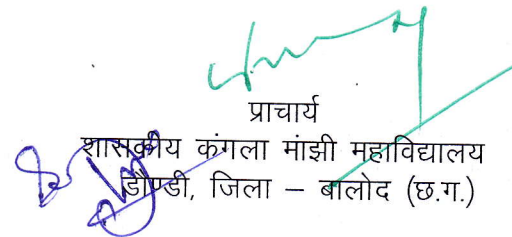 प्राचार्य
शासकीय कंगला मांझी महाविद्यालय
डौण्डी, जिला – बालोद (छ.ग.)